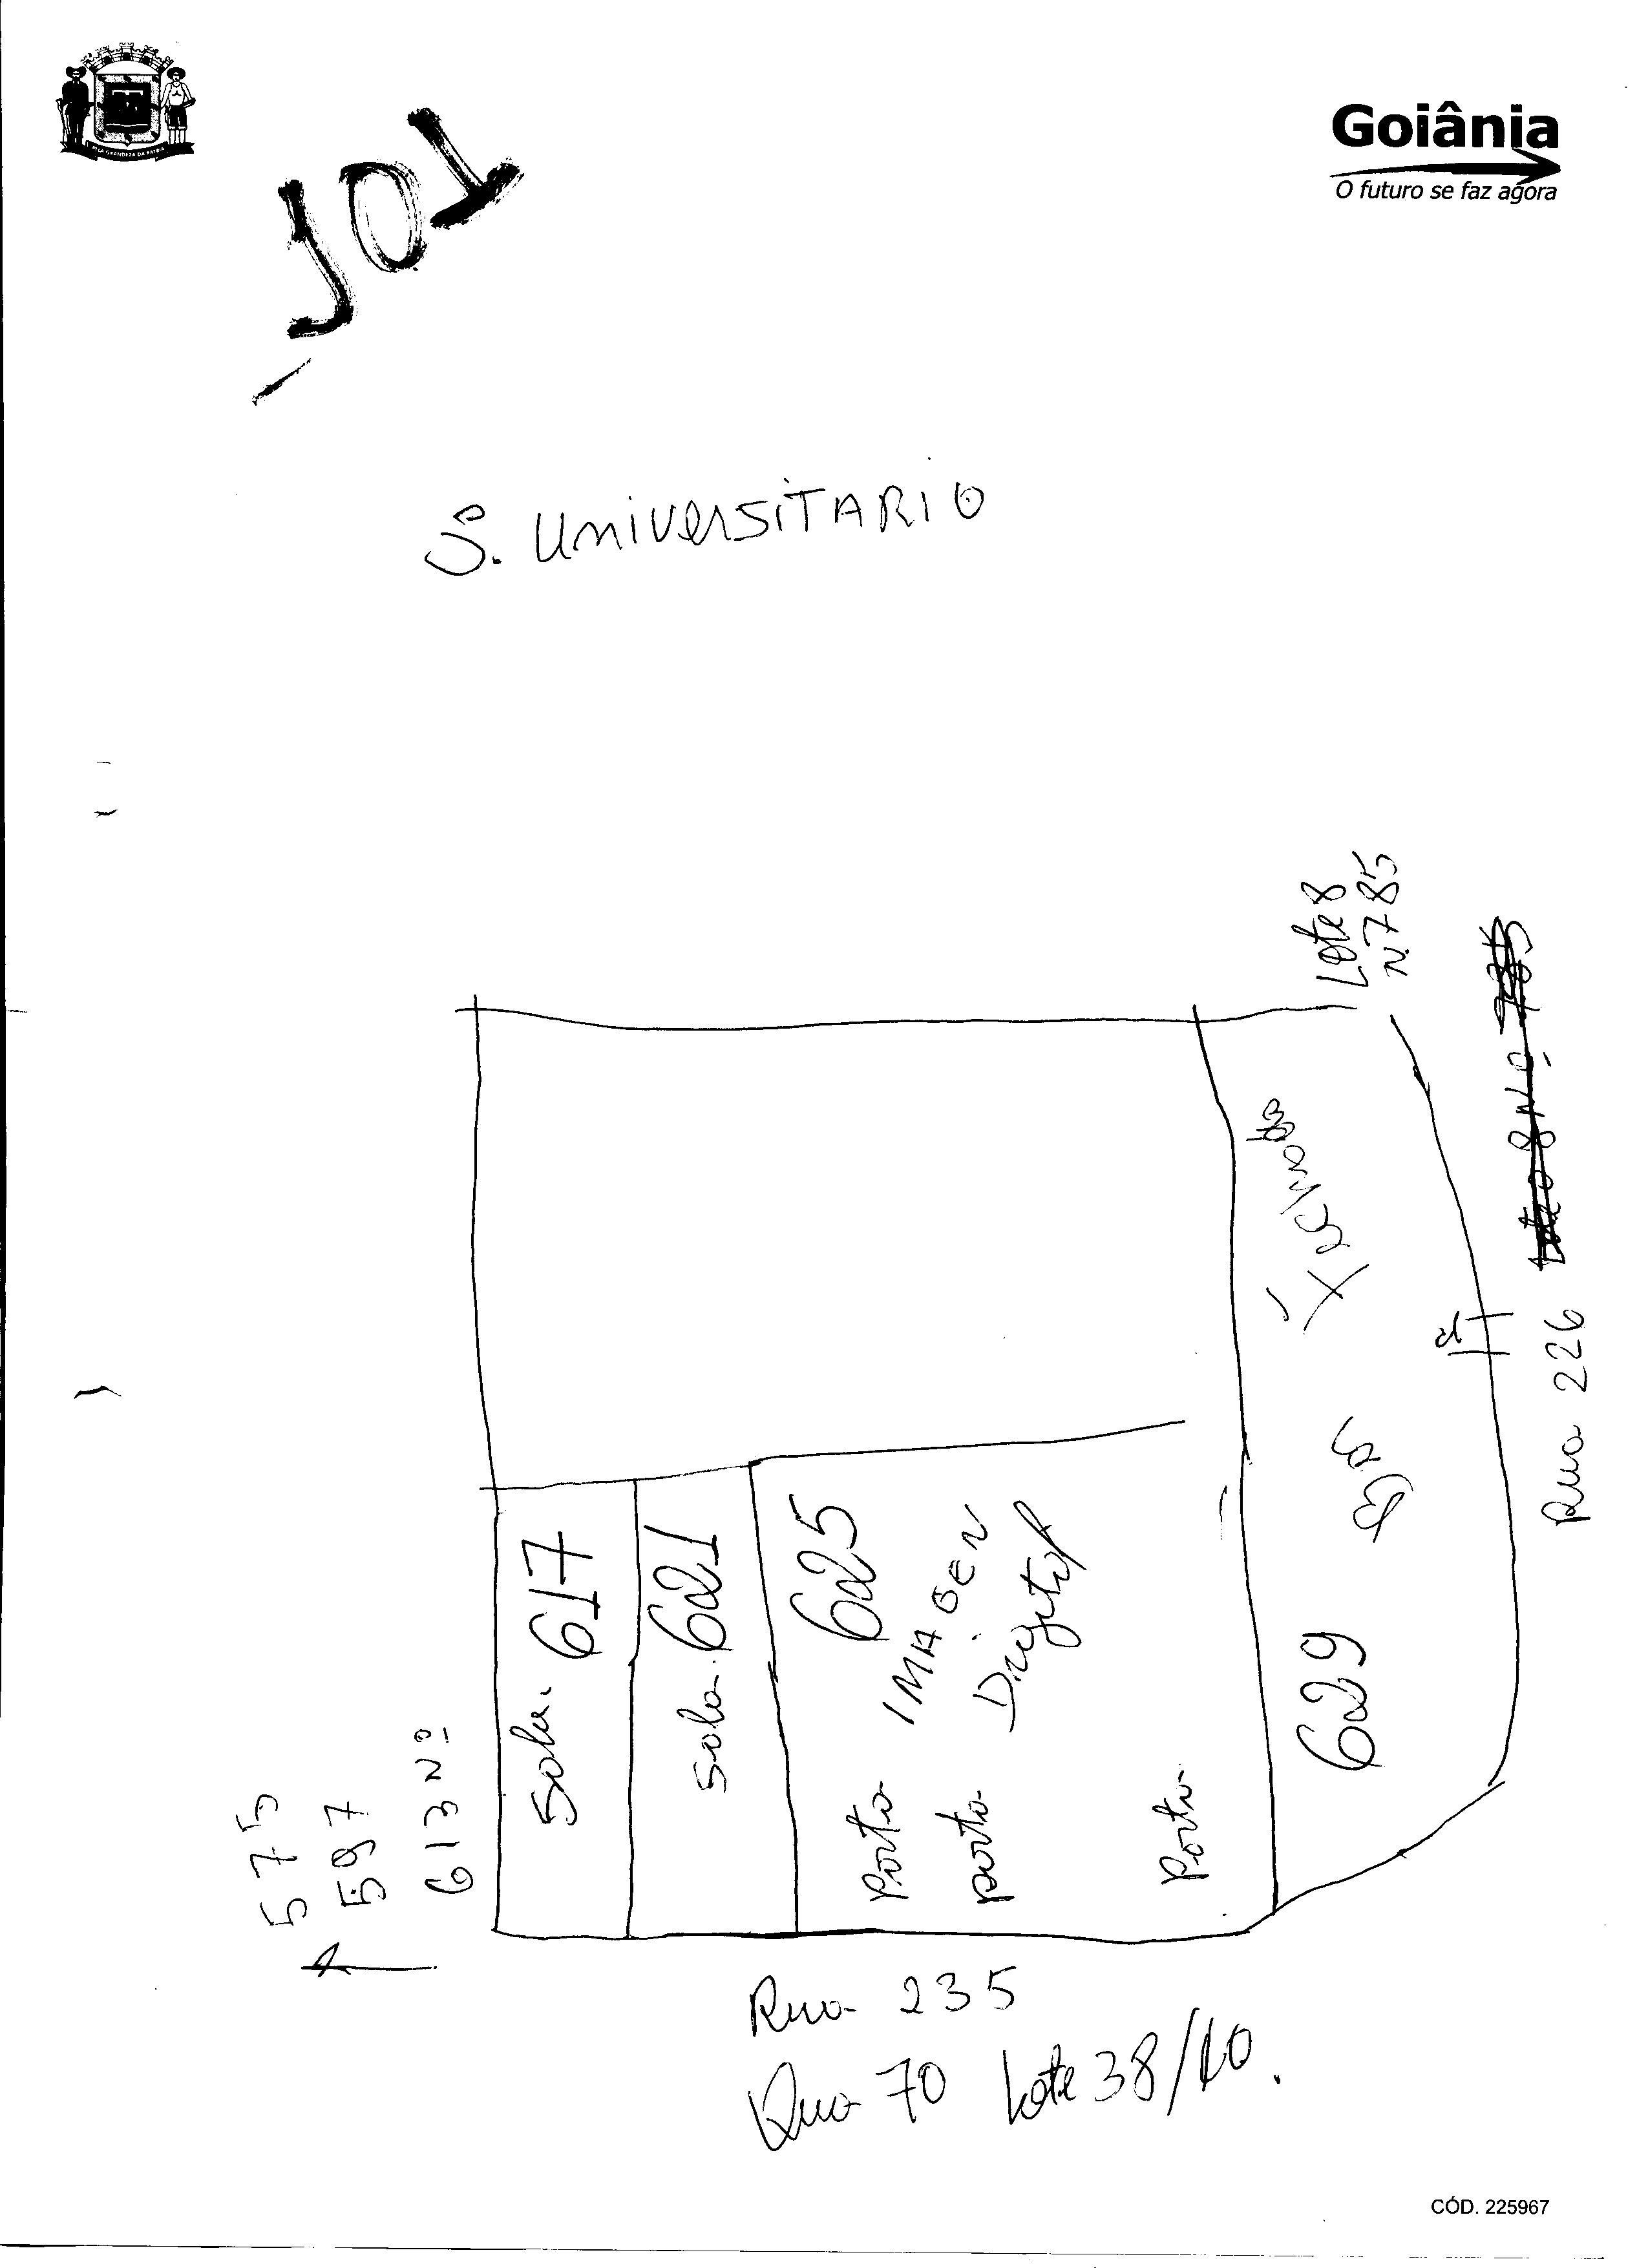 Goiânia
O futuro se faz agora
PELA GRANDEZA DA PATRIA
101
S. UNIVERSITARIO
Lote 8
N. 785
Rua 226
Sala. 617
Sala. 621
625
IMAGEN
Digital
Porta
porta
Porta
629
575
597
613 Nº
Rua 235
Qua 70 Lote 38/40.
CÓD. 225967